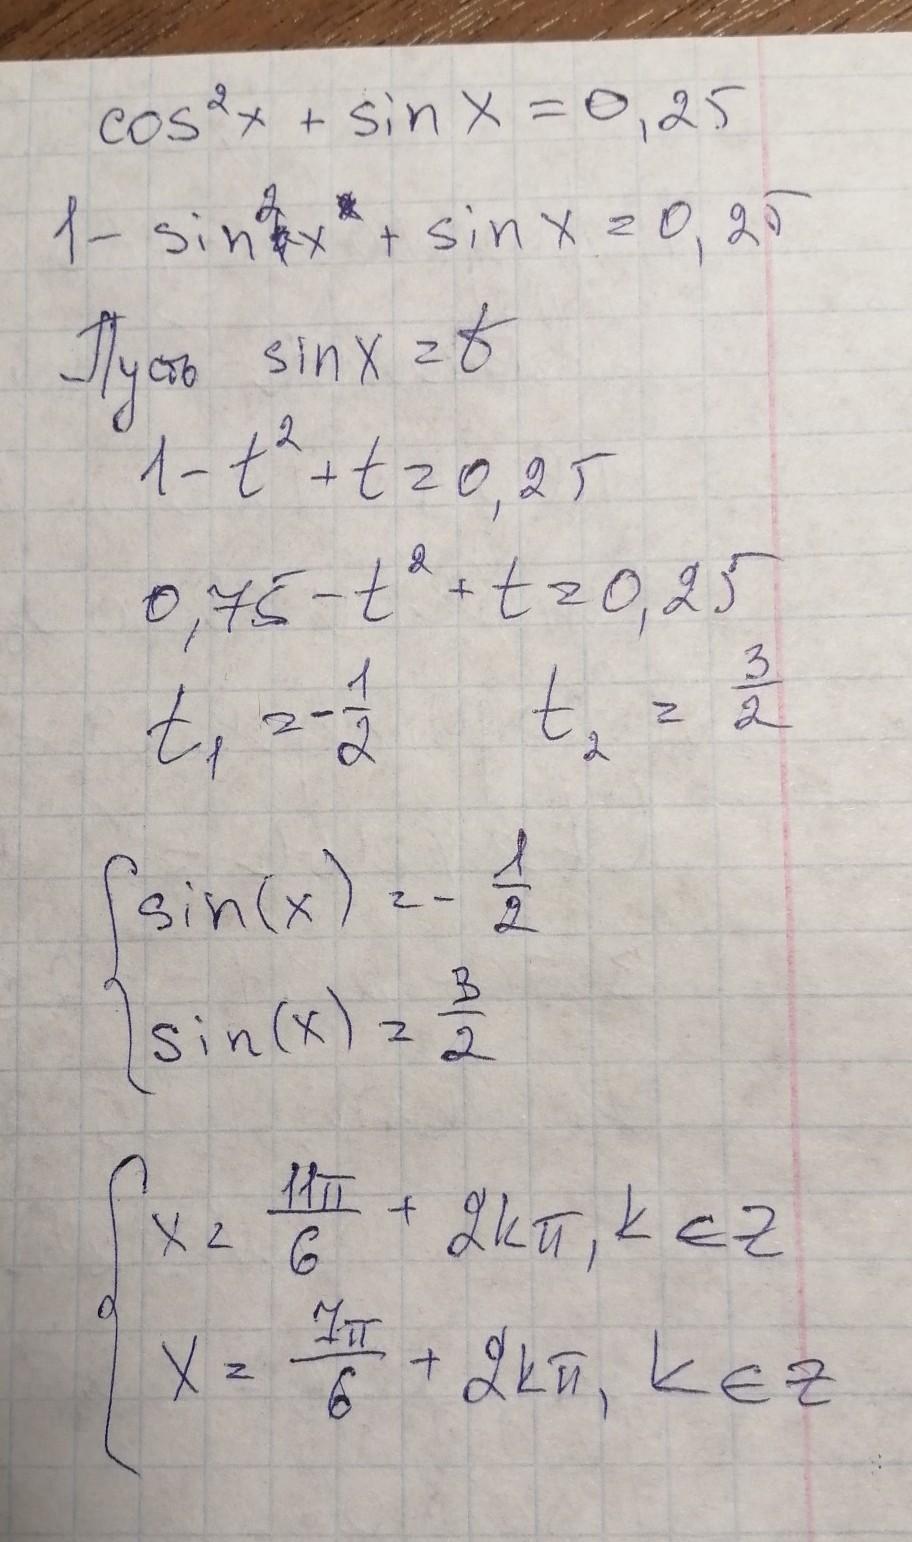 cos²x + sin x = 0,25
1 - sin²x + sin x = 0,25
Пусть sin x = t
1 - t² + t = 0,25
0,75 - t² + t = 0,25
t₁ = -1/2 t₂ = 3/2
{ sin(x) = - 1/2
sin(x) = 3/2
{ x = 11π/6 + 2kπ, k ∈ Z
x = 7π/6 + 2kπ, k ∈ Z